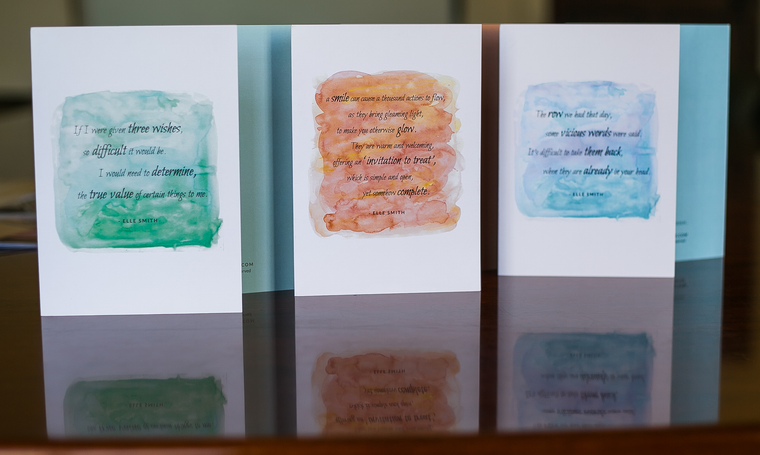 If I were given three wishes,
so difficult it would be.
I would need to determine,
the true value of certain things to me.
- ELLE SMITH
a smile can cause a thousand actions to flow,
as they bring gleaming light,
to make you otherwise glow.
They are warm and welcoming,
offering an 'invitation to treat',
which is simple and open,
yet somehow complete.
- ELLE SMITH
The row we had that day,
some vicious words were said.
It's difficult to take them back,
when they are already in your head
- ELLE SMITH